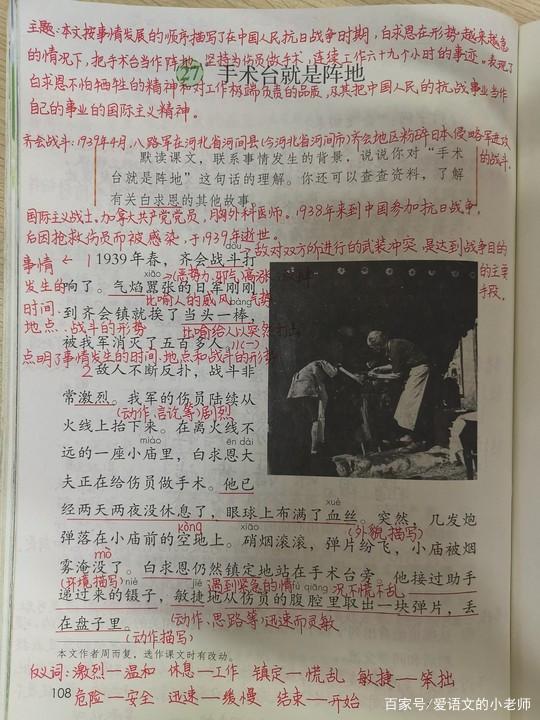 主题:本文按事情发展的顺序描写了在中国人民抗日战争时期,白求恩在形势越来越危急
的情况下,把手术台当作阵地,坚持为伤员做手术,连续工作六十九个小时的事迹。表现了
27 手术台就是阵地
白求恩不怕牺牲的精神和对工作极端负责的品质,及其把中国人民的抗战事业当作
自己的事业的国际主义精神。
齐会战斗:1939年4月,八路军在河北省河间县(今河北省河间市)齐会地区粉碎日本侵略军进攻
的战斗.
默读课文,联系事情发生的背景,说说你对“手术
台就是阵地”这句话的理解。你还可以查查资料,了解
有关白求恩的其他故事。
国际主义战士,加拿大共产党党员,胸外科医师。1938年来到中国参加抗日战争,
后因抢救伤员而被感染,于1939年逝世。
dòu
敌对双方所进行的武装冲突,是达到战争目的
的主要
手段.
事情 ← 1 1939年春,齐会战斗打
xiāo
(恶势力、邪气)高涨
发生的响了。气焰嚣张的日军刚刚
比喻人的威风气势
bàng
时间. 到齐会镇就挨了当头一棒,
地点.战斗的形势 比喻给人以突然打击
被我军消灭了五百多人。
点明了事情发生的时间.地点和战斗的形势
2 敌人不断反扑,战斗非
常激烈。我军的伤员陆续从
(动作、言论等)剧烈
火线上抬下来。在离火线不
miào ēn dài
远的一座小庙里,白求恩大
夫正在给伤员做手术。他已
xuè
经两天两夜没休息了,眼球上布满了血丝。突然,几发炮
kòng xiāo (外貌描写)
弹落在小庙前的空地上。硝烟滚滚,弹片纷飞,小庙被烟
mò
雾淹没了。白求恩仍然镇定地站在手术台旁。他接过助手
(环境描写) niè jié 遇到紧急的情况不慌不乱 fù qiāng
递过来的镊子,敏捷地从伤员的腹腔里取出一块弹片,丢
在盘子里。 (动作、思路等)迅速而灵敏
(动作描写)
本文作者周而复,选作课文时有改动。
反义词:激烈—温和 休息—工作 镇定—慌乱 敏捷—笨拙
108 危险—安全 迅速—缓慢 结束—开始
百家号/爱语文的小老师